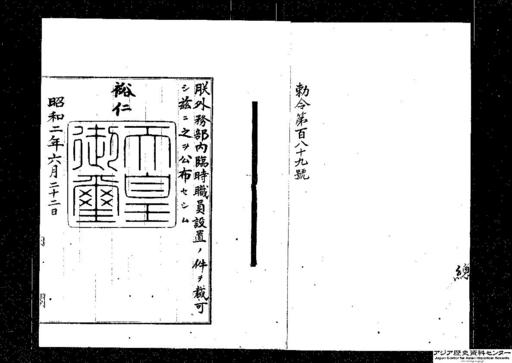 勅令第百八十九號
總
朕外務部内臨時職員設置ノ件ヲ裁可
シ茲ニ之ヲ公布セシム
裕仁
天皇御璽
昭和二年六月二十二日
アジア歴史資料センター
Japan Center for Asian Historical Records